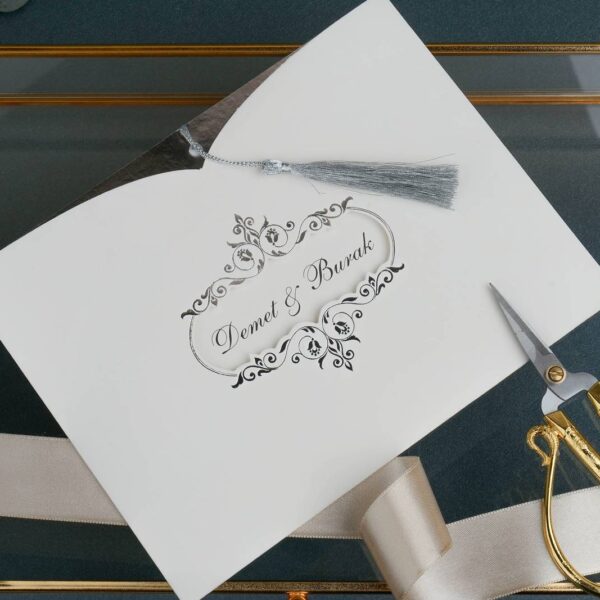 Demet & Burak